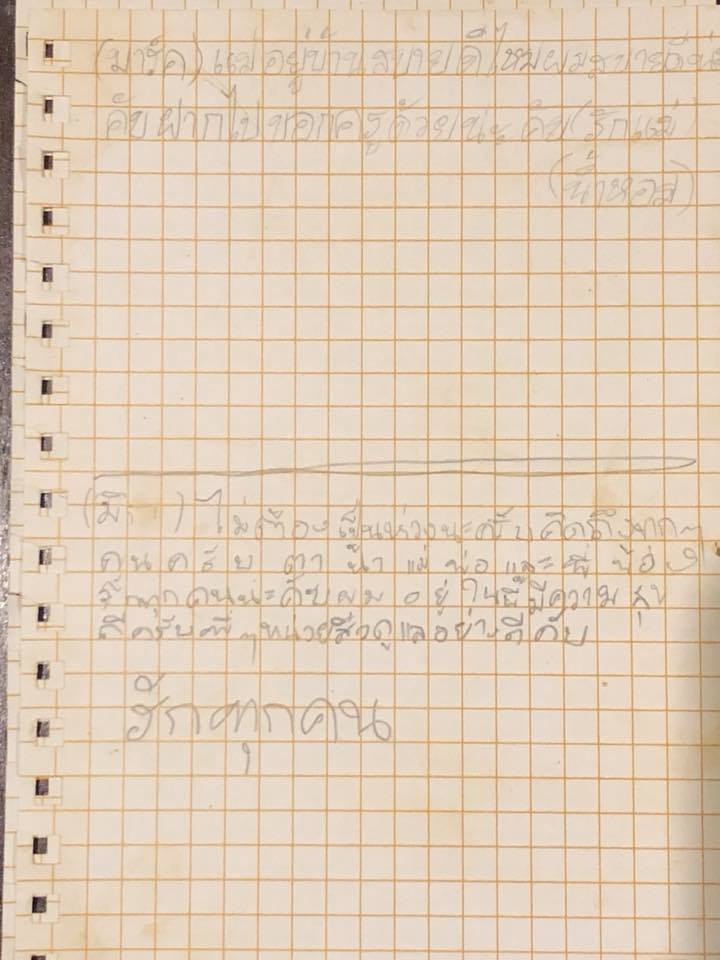 (มาร์ค) แม่อยู่บ้านสบายดีไหมผมสบายดี
คับฝากไปบอกครูด้วยนะคับ(รักแม่)
(น้ำหอม)
(มิ ) ไม่ต้องเป็นห่วงนะครับคิดถึงทุกๆ
คนครับ ตา น้า แม่ พ่อ และ พี่ น้อง
รักทุกคนนะคับผม อยู่ ในนี้มีความสุข
ดีครับพี่ๆหน่วยซีวดูแลอย่างดีคับ
รักทุกคน